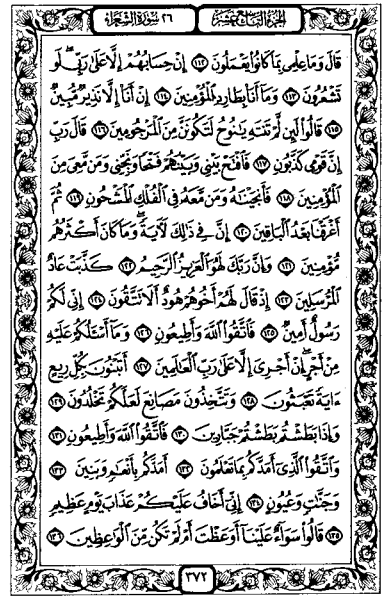 الجزء التاسع عشر ٢٦ سورة الشعراء
قَالَ وَمَا عِلْمِى بِمَا كَانُوا۟ يَعْمَلُونَ ۝١١٢ إِنْ حِسَابُهُمْ إِلَّا عَلَىٰ رَبِّى ۖ لَوْ
تَشْعُرُونَ ۝١١٣ وَمَآ أَنَا۠ بِطَارِدِ ٱلْمُؤْمِنِينَ ۝١١٤ إِنْ أَنَا۠ إِلَّا نَذِيرٌ مُّبِينٌ
۝١١٥ قَالُوا۟ لَئِن لَّمْ تَنتَهِ يَـٰنُوحُ لَتَكُونَنَّ مِنَ ٱلْمَرْجُومِينَ ۝١١٦ قَالَ رَبِّ
إِنَّ قَوْمِى كَذَّبُونِ ۝١١٧ فَٱفْتَحْ بَيْنِى وَبَيْنَهُمْ فَتْحًا وَنَجِّنِى وَمَن مَّعِىَ مِنَ
ٱلْمُؤْمِنِينَ ۝١١٨ فَأَنجَيْنَـٰهُ وَمَن مَّعَهُۥ فِى ٱلْفُلْكِ ٱلْمَشْحُونِ ۝١١٩ ثُمَّ
أَغْرَقْنَا بَعْدُ ٱلْبَاقِينَ ۝١٢٠ إِنَّ فِى ذَٰلِكَ لَـَٔايَةً ۖ وَمَا كَانَ أَكْثَرُهُم
مُّؤْمِنِينَ ۝١٢١ وَإِنَّ رَبَّكَ لَهُوَ ٱلْعَزِيزُ ٱلرَّحِيمُ ۝١٢٢ كَذَّبَتْ عَادٌ
ٱلْمُرْسَلِينَ ۝١٢٣ إِذْ قَالَ لَهُمْ أَخُوهُمْ هُودٌ أَلَا تَتَّقُونَ ۝١٢٤ إِنِّى لَكُمْ
رَسُولٌ أَمِينٌ ۝١٢٥ فَٱتَّقُوا۟ ٱللَّهَ وَأَطِيعُونِ ۝١٢٦ وَمَآ أَسْـَٔلُكُمْ عَلَيْهِ
مِنْ أَجْرٍ ۖ إِنْ أَجْرِىَ إِلَّا عَلَىٰ رَبِّ ٱلْعَـٰلَمِينَ ۝١٢٧ أَتَبْنُونَ بِكُلِّ رِيعٍ
ءَايَةً تَعْبَثُونَ ۝١٢٨ وَتَتَّخِذُونَ مَصَانِعَ لَعَلَّكُمْ تَخْلُدُونَ ۝١٢٩
وَإِذَا بَطَشْتُم بَطَشْتُمْ جَبَّارِينَ ۝١٣٠ فَٱتَّقُوا۟ ٱللَّهَ وَأَطِيعُونِ ۝١٣١
وَٱتَّقُوا۟ ٱلَّذِىٓ أَمَدَّكُم بِمَا تَعْلَمُونَ ۝١٣٢ أَمَدَّكُم بِأَنْعَـٰمٍ وَبَنِينَ ۝١٣٣
وَجَنَّـٰتٍ وَعُيُونٍ ۝١٣٤ إِنِّىٓ أَخَافُ عَلَيْكُمْ عَذَابَ يَوْمٍ عَظِيمٍ
۝١٣٥ قَالُوا۟ سَوَآءٌ عَلَيْنَآ أَوَعَظْتَ أَمْ لَمْ تَكُن مِّنَ ٱلْوَٰعِظِينَ ۝١٣٦
٣٧٢